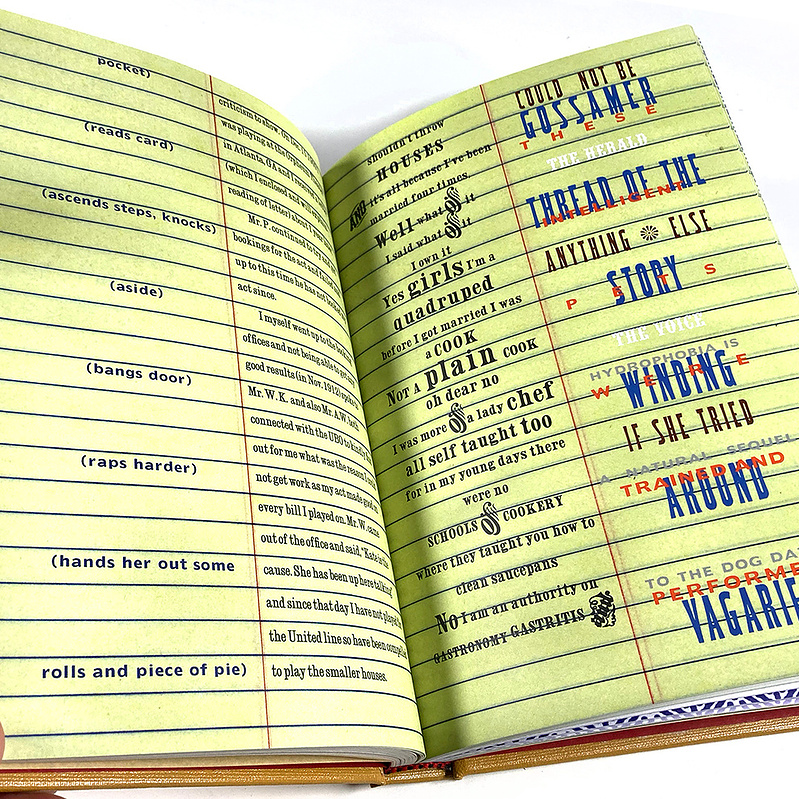 pocket)
(reads card)
(ascends steps, knocks)
(aside)
(bangs door)
(raps harder)
(hands her out some
rolls and piece of pie)
criticism to show.
was playing at the
in Atlanta, GA and
(which I enclosed and will
reading of letter) about
Mr. P. continued to try and
bookings for the act and
up to this time he has not booked
act since.
I myself went up to the
offices and not being able to get any
good results (in Nov. 1912)
Mr. W. K. and also Mr. A. W.
connected with the UBO to kindly
out for me what was the reason I could
not get work as my act made good on
every bill I played on. Mr. W. came
out of the office and said, "Kate is the
cause. She has been up here talking"
and since that day I have not played
the United line so have been compelled
to play the smaller houses.
shouldn't throw
HOUSES
AND it's all because I've been
married four times
Well what of it
I said what of it
I own it
Yes girls I'm a
quadruped
before I got married I was
a COOK
NOT A plain COOK
oh dear no
I was more of a lady chef
all self taught too
for in my young days there
were no
SCHOOLS of COOKERY
where they taught you how to
clean saucepans
No I am an authority on
GASTRONOMY GASTRITIS
COULD NOT BE
GOSSAMER
THESE
THE HERALD
THREAD OF THE
INTELLIGENT
ANYTHING ELSE
STORY
PETS
THE VOICE
HYDROPHOBIA IS
WERE
WINDING
IF SHE TRIED
A NATURAL SEQUEL
TRAINED AND
AROUND
TO THE DOG DA
PERFORME
VAGARIE